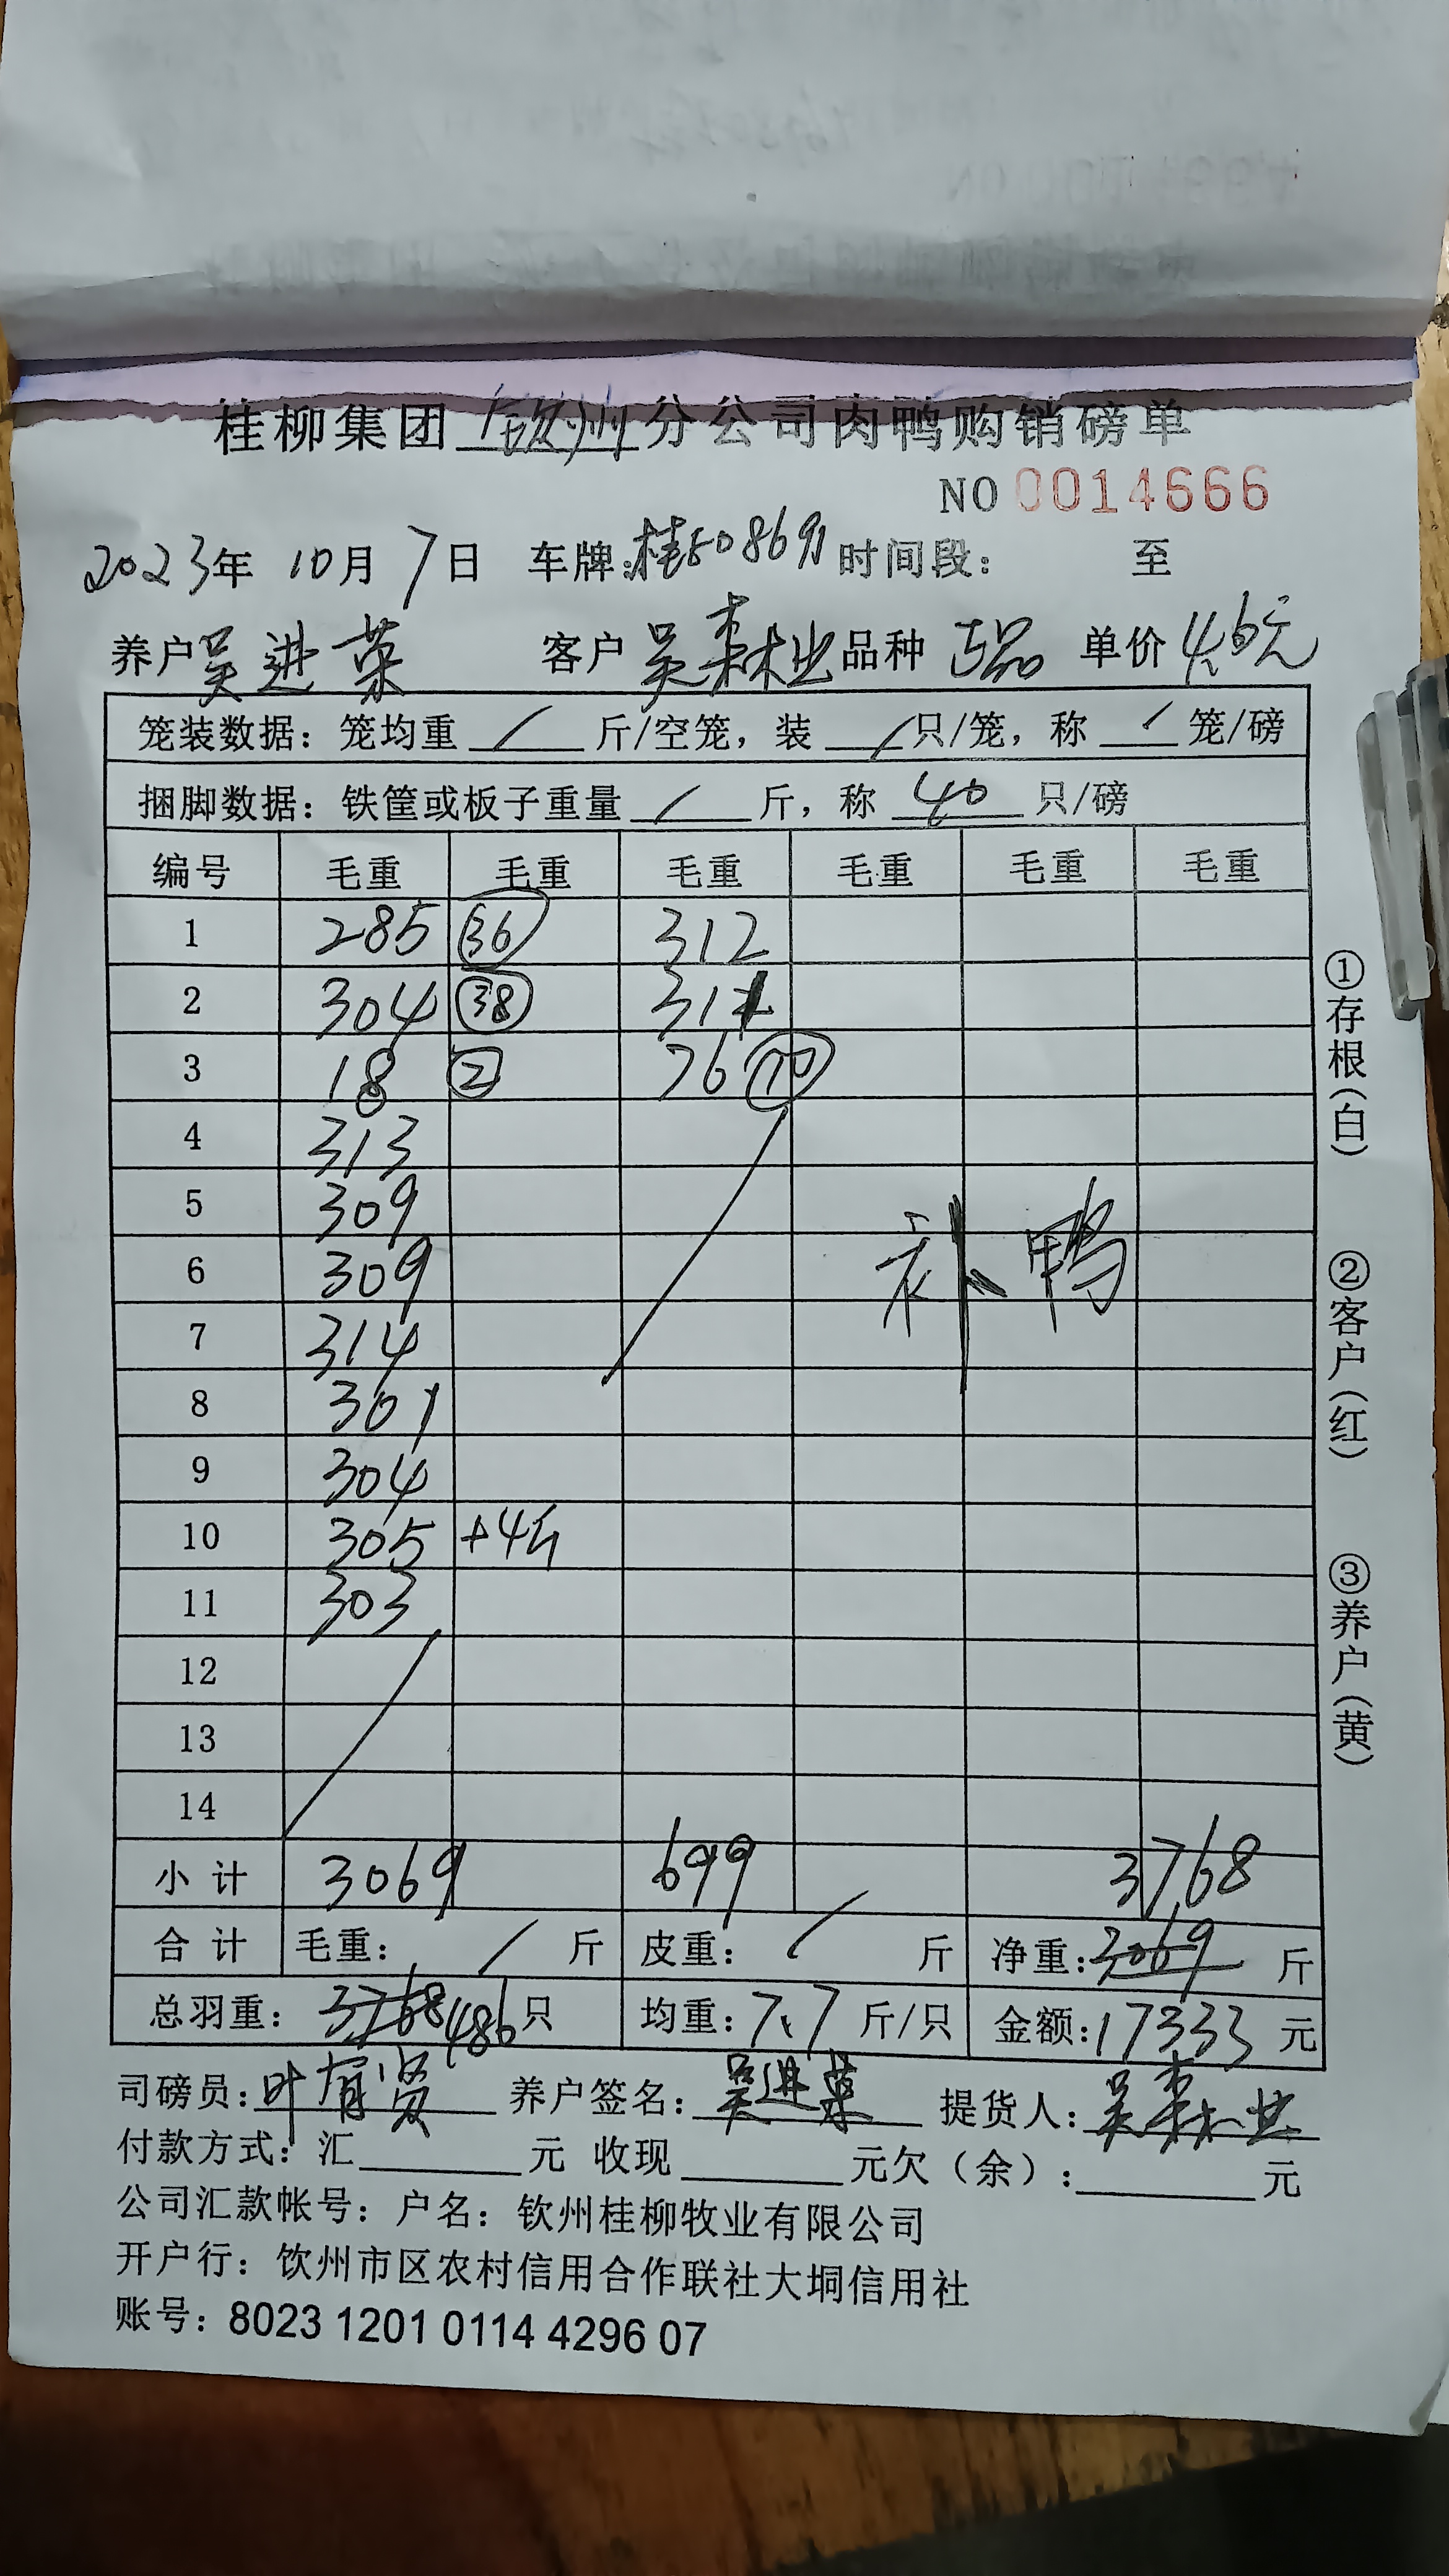 桂柳集团 钦州 分公司肉鸭购销磅单
NO 0014666
2023年 10月 7日 车牌: 时间段: 至
养户 吴进菜 客户 吴 业 品种 正品 单价 4.6元
笼装数据: 笼均重 / 斤/空笼, 装 / 只/笼, 称 / 笼/磅
捆脚数据: 铁筐或板子重量 / 斤, 称 40 只/磅
编号 毛重 毛重 毛重 毛重 毛重 毛重
1 285 36 312
2 304 38 311
3 18 2 76 10
4 313
5 309
6 309 补鸭
7 314
8 301
9 304
10 305 +4斤
11 303
12
13
14
小计 3069 699 3768
合计 毛重: / 斤 皮重: / 斤 净重: 3069 斤
总羽重: 3768 486 只 均重: 7.7 斤/只 金额: 17333 元
司磅员: 叶有贤 养户签名: 吴进菜 提货人: 吴 业
付款方式: 汇 元 收现 元欠(余): 元
公司汇款帐号: 户名: 钦州桂柳牧业有限公司
开户行: 饮州市区农村信用合作联社大垌信用社
账号: 8023 1201 0114 4296 07
①存根(白)
②客户(红)
③养户(黄)